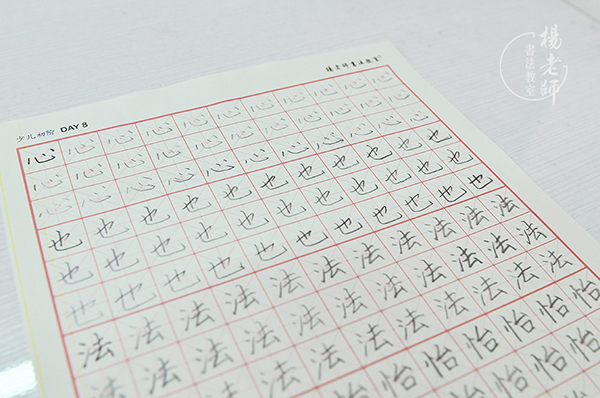 楊老師
書法教室
楊老師書法教室
少儿初阶 DAY 8
心心心心心心心心心心心
心心心心心心心心心心心
心心心心心心心心心心心
也也也也也也也也也也也
也也也也也也也也也也也
也也也也也也也也也也也
法法法法法法法法法法法
法法法法法法法法法法法
法法法法法法法法法法法
怡怡怡怡怡怡
怡怡怡
怡